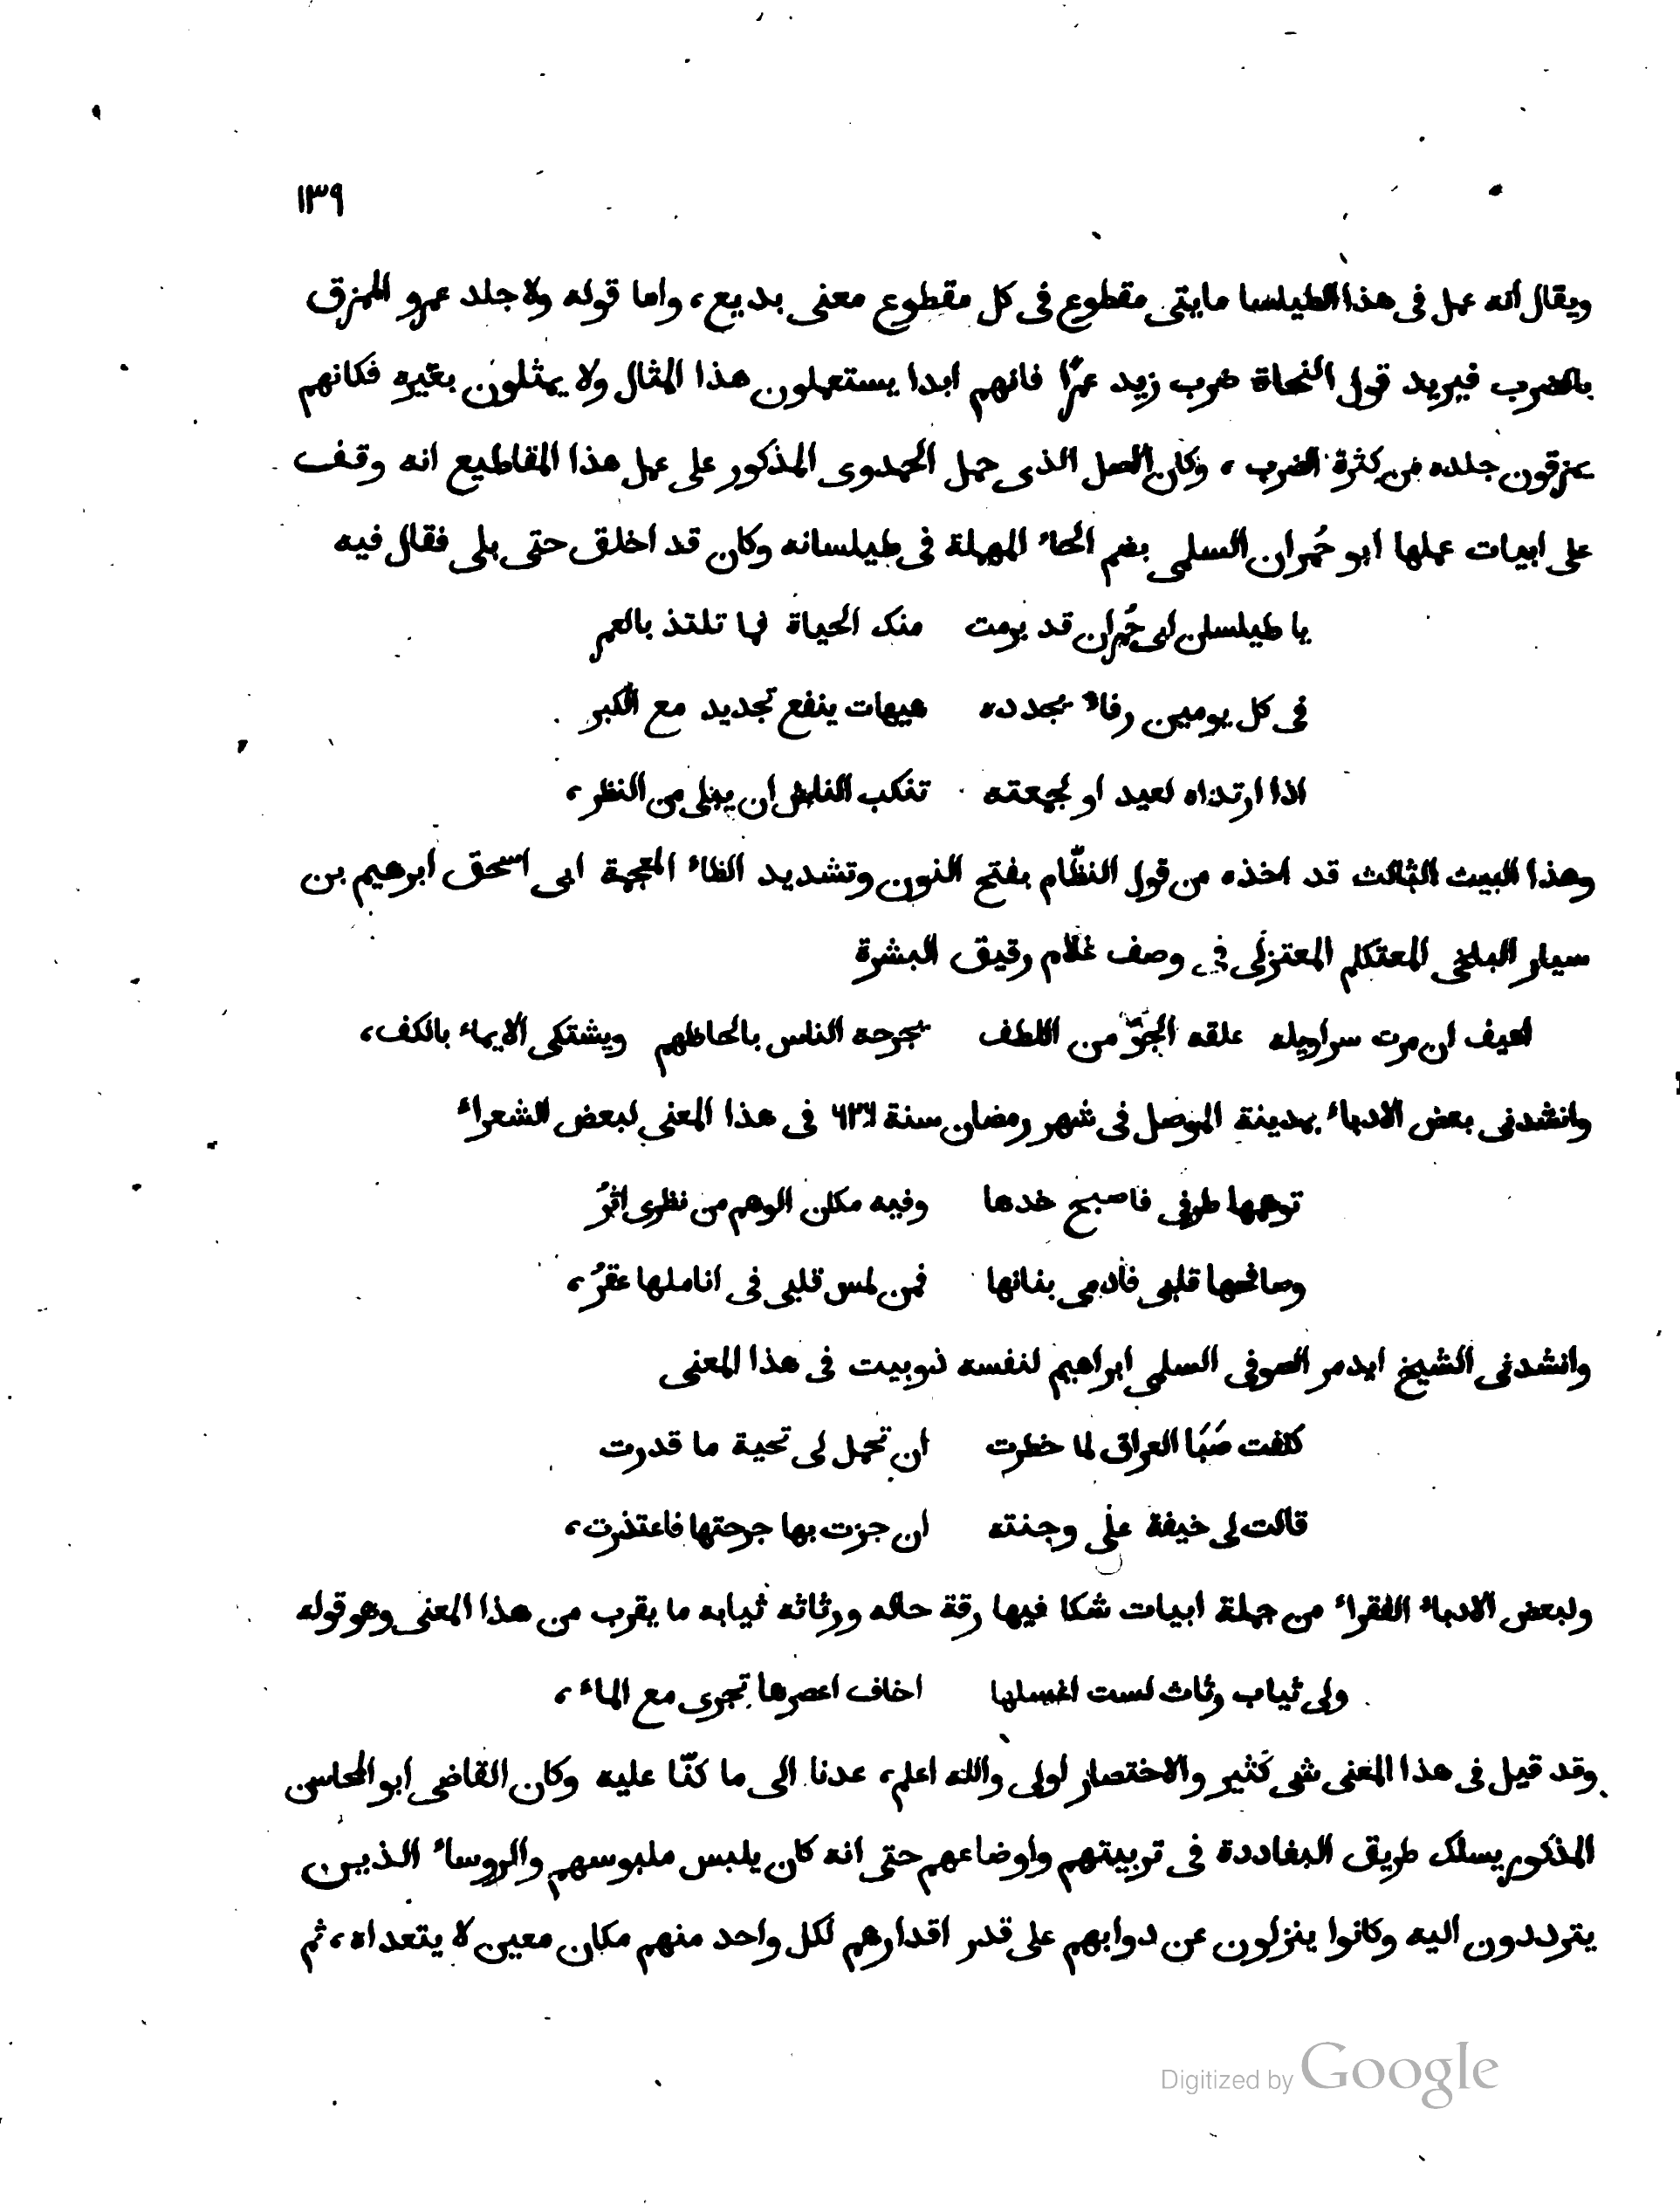 ١٣٩
ويقال انه عمل فى هذا الطيلسا مايتى مقطوع فى كل مقطوع معنى بديع، واما قوله ولا جلد عمرو الممزق
بالضرب فيريد قول النحاة ضرب زيد عمرًا فانهم ابدا يستعملون هذا المثال ولا يمثلون بغيره فكانهم
يمزقون جلده من كثرة الضرب، وكان الاصل الذى حمل الحمدوى المذكور على عمل هذا المقاطيع انه وقف
على ابيات عملها ابو حُمران السلمى بضم الحاء المهملة فى طيلسانه وكان قد اخلق حتى بلى فقال فيه
يا طيلسان ابى حُمران قد برمت منك الحياة فما تلتذ بالعمر
فى كل يومين رفاء يجدده هيهات ينفع تجديد مع الكبر
اذا ارتداه لعيد او لجمعته تنكب الناس ان يبلى من النظر،
وهذا البيت الثالث قد اخذه من قول النظّام بفتح النون وتشديد الظاء المعجمة ابى اسحق ابرهيم بن
سيار البلخى المعتكلم المعتزلى فى وصف غلام رقيق البشرة
اهيف ان مرت سراويله علقه الجوّ من اللطف يجرحه الناس بالحاظهم ويشتكى الايماء بالكف،
وانشدنى بعض الادباء بمدينة الموصل فى شهر رمضان سنة ٦٢٦ فى هذا المعنى لبعض الشعراء
توهمها طرفى فاصبح خدها وفيه مكان الوهم من نظرى اثرُ
وصافحها قلبى فادمى بنانها فمن لمس قلبى فى اناملها عقرُ،
وانشدنى الشيخ ايدمر الصوفى السلمى ابراهيم لنفسه ذوبيت فى هذا المعنى
كلفت صَبَا العراق لما خطرت ان تحمل لى تحية ما قدرت
قالت لى خيفة على وجنته ان جزت بها جرحتها فاعتذرت،
ولبعض الادباء الفقراء من جملة ابيات شكا فيها رقة حاله ورثاثه ثيابه ما يقرب من هذا المعنى وهو قوله
ولى ثياب رثاث لست اغسلها اخاف اعصرها تجرى مع الماء،
وقد قيل فى هذا المعنى شى كثير والاختصار اولى والله اعلم، عدنا الى ما كنّا عليه وكان القاضى ابو المحاسن
المذكور يسلك طريق البغاددة فى تربيتهم واوضاعهم حتى انه كان يلبس ملبوسهم والروساء الذين
يترددون اليه وكانوا ينزلون عن دوابهم على قدر اقدارهم لكل واحد منهم مكان معين لا يتعداه، ثم
Digitized by Google